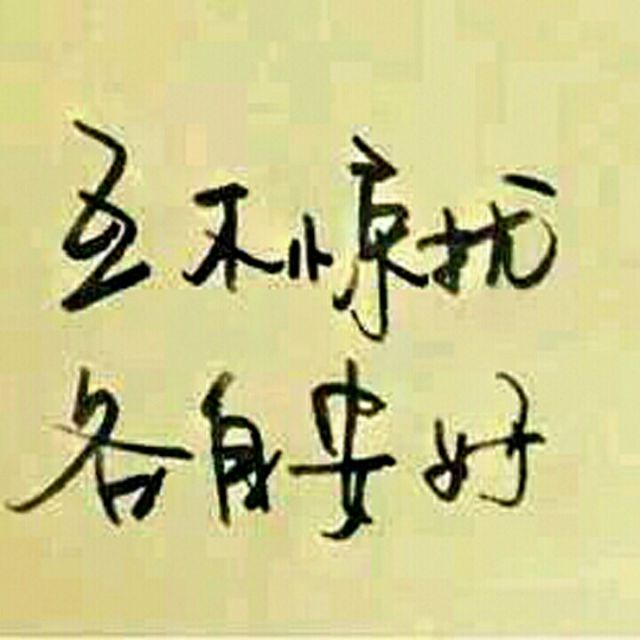 互不惊扰
各自安好